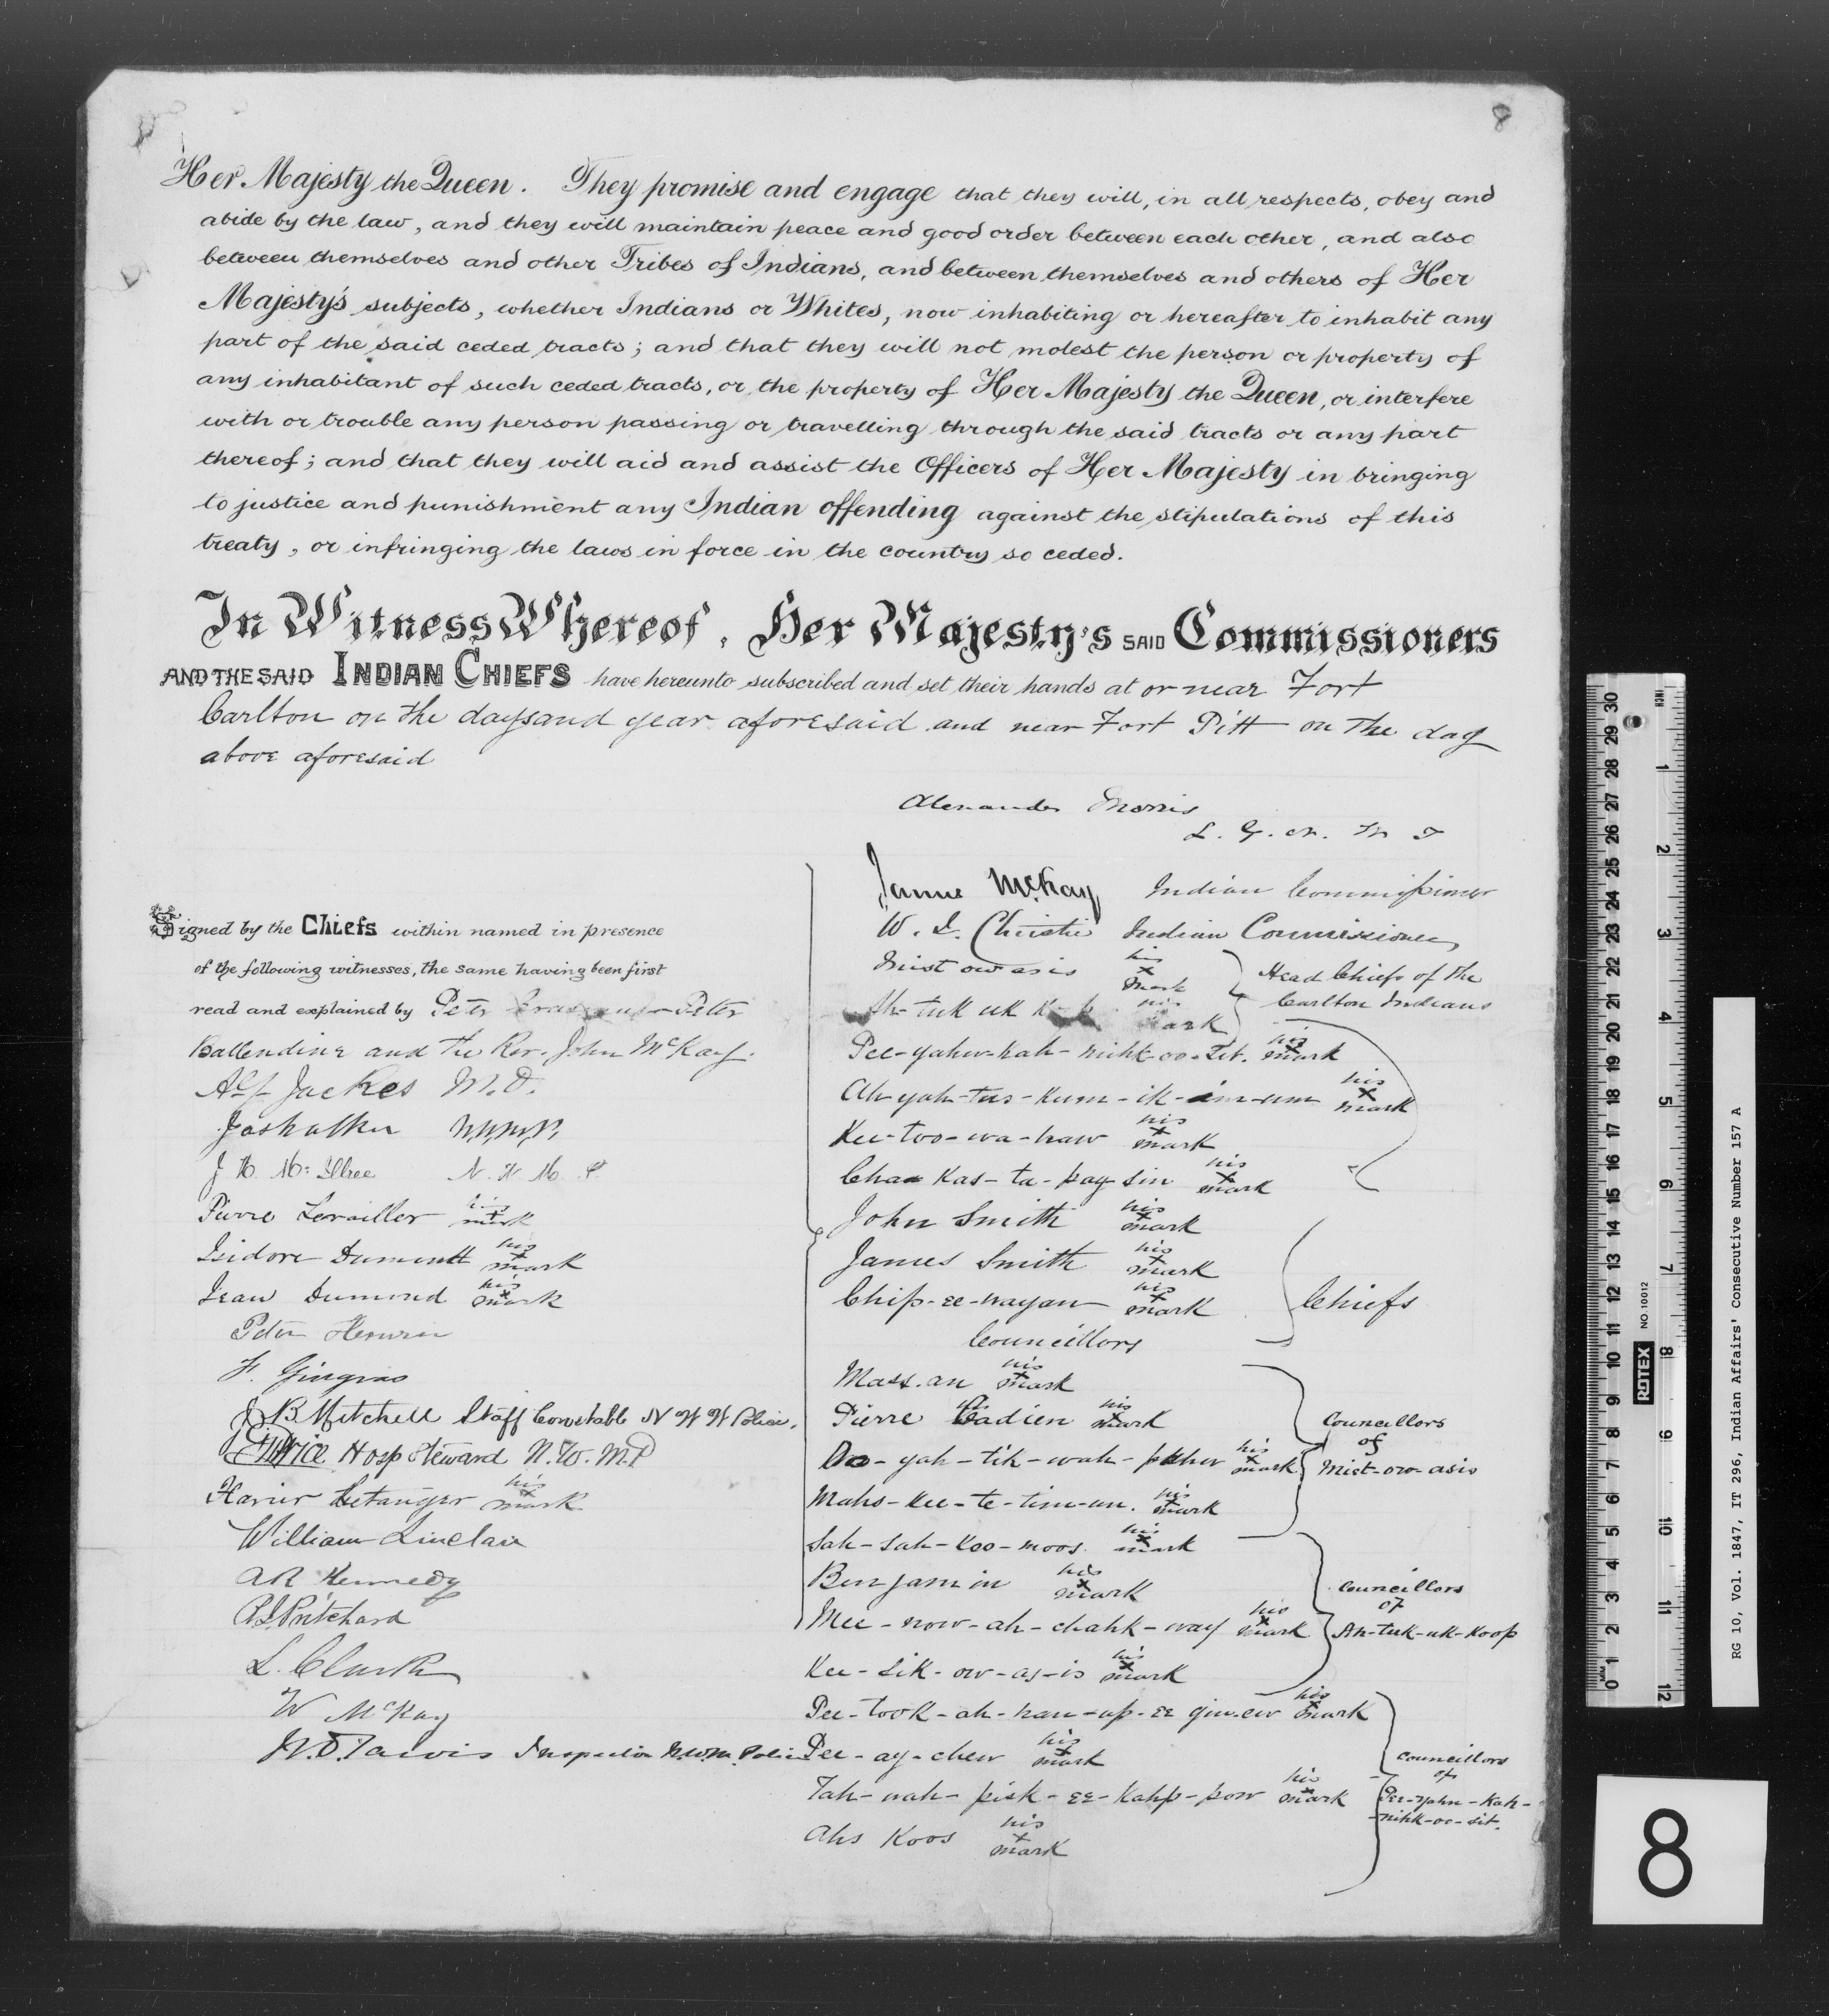 8
Her Majesty the Queen. They promise and engage that they will, in all respects, obey and
abide by the law, and they will maintain peace and good order between each other, and also
between themselves and other Tribes of Indians, and between themselves and others of Her
Majesty's subjects, whether Indians or Whites, now inhabiting or hereafter to inhabit any
part of the said ceded tracts; and that they will not molest the person or property of
any inhabitant of such ceded tracts, or the property of Her Majesty the Queen, or interfere
with or trouble any person passing or travelling through the said tracts or any part
thereof; and that they will aid and assist the Officers of Her Majesty in bringing
to justice and punishment any Indian offending against the stipulations of this
treaty, or infringing the laws in force in the country so ceded.
In Witness Whereof, Her Majesty's SAID Commissioners
AND THE SAID INDIAN CHIEFS have hereunto subscribed and set their hands at or near Fort
Carlton on the days and year aforesaid and near Fort Pitt on the day
above aforesaid
Alexander Morris
L. G. N. W T
James McKay Indian Commissioner
W. J. Christie Indian Commissioner
Mist ow asis his x mark
Head Chiefs of the
Carlton Indians
Ah-tuk uk his mark
Pee-yahn-kah-nihk-oo-sit. his x mark
Ah-yah-tus-kum-ik-im-um his x mark
Kee-too-wa-haw his x mark
Chaa Kas-ta-pay-sin his x mark
John Smith his x mark
James Smith his x mark
Chip-ee-wayan his x mark
Chiefs
Councillors
Mass.an his x mark
Pierre Cadien his x mark
Oo-yah-tik-wah-pahn his x mark
Mahs-kee-te-tim-un. his x mark
Councillors
of
Mist-ow-asis
Sah-sah-koo-moos. his x mark
Benjamin his x mark
Mee-now-ah-chahk-way his x mark
Kee-sik-ow-as-is his x mark
Councillors
of
Ah-tuk-uk-Koop
Pee-took-ah-han-up-ee gin-ew his x mark
Pee-ay-chew his x mark
Tah-wah-pisk-ee-kahp-pow his x mark
Ahs Koos his x mark
Councillors
of
Pee-yahn-kah-
nihk-oo-sit.
Signed by the Chiefs within named in presence
of the following witnesses, the same having been first
read and explained by Peter Peter
Ballendine and the Rev. John McKay.
A. Jackes M.D.
Jas Walker N.W.M.P.
J H. Mc Illree N. W. M. P.
Pierre Levailler his x mark
Isidore Dumontt his x mark
Jean Dumond his x mark
Peter
F. Gingras
J B Mitchell Staff Constable N W M Police,
Price Hosp Steward N.W.M.P
Xavier Letanger his x mark
William Sinclair
A R Kennedy
R.J. Pritchard
L. Clarke
W McKay
W. D. Jarvis Inspector N.W.M. Police
INCH
1 2 3 4 5 6 7 8 9 10 11 12
30 29 28 27 26 25 24 23 22 21 20 19 18 17 16 15 14 13 12 11 10 9 8 7 6 5 4 3 2 1 0
ROTEX NO 10012
RG 10, Vol. 1847, IT 296, Indian Affairs' Consecutive Number 157 A
8